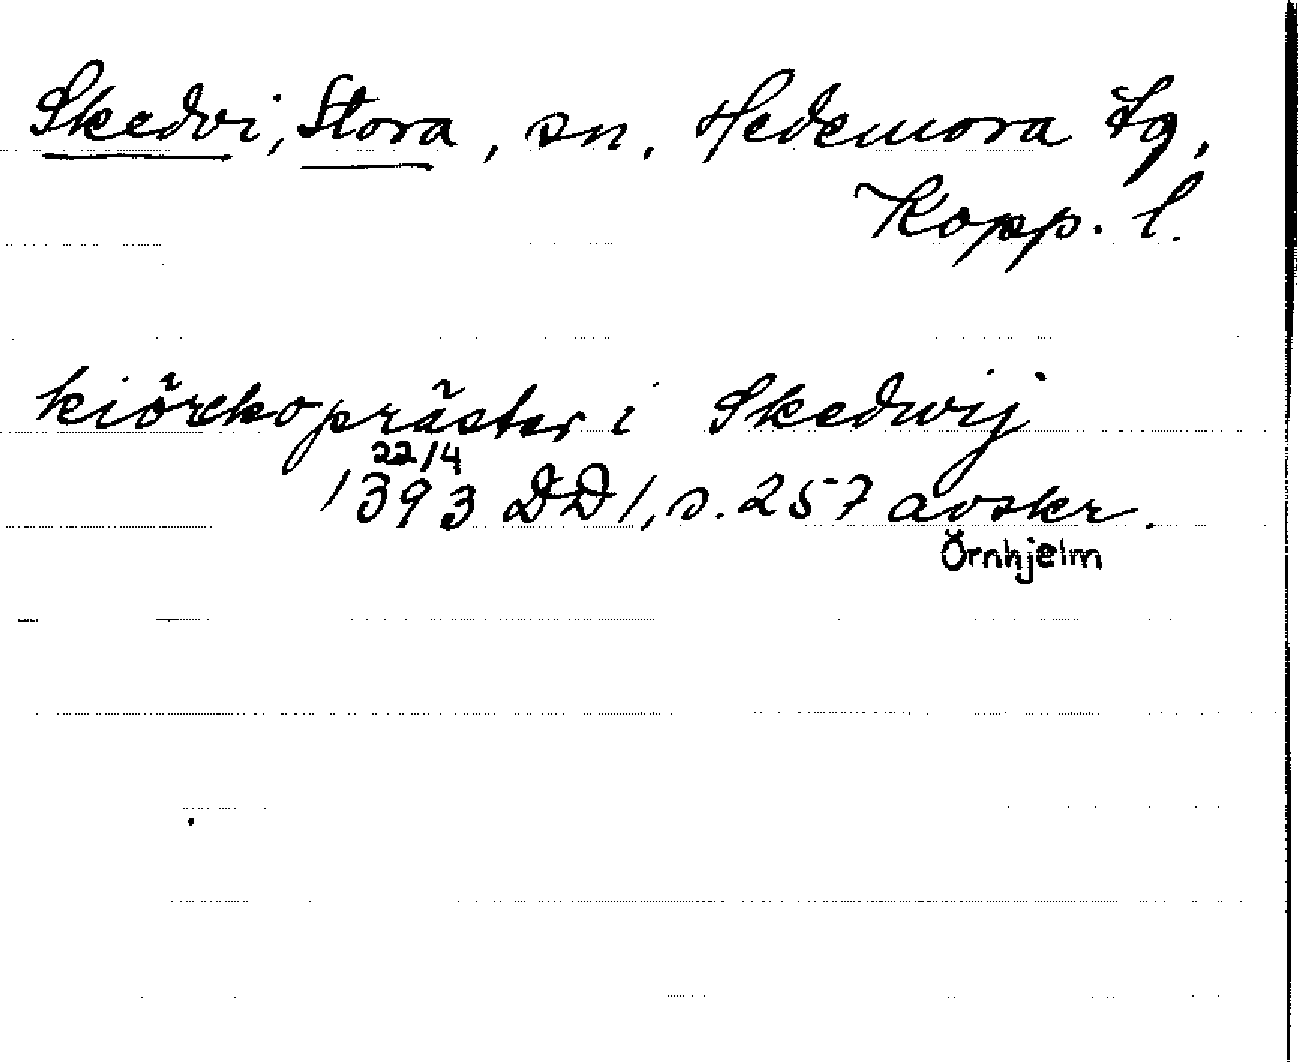 Skedvi, Stora, sn. Hedemora tg,
Kopp. l.
kiörchopräster i Skedwij
22/4
1393 DD 1, s. 257 avskr.
Örnhjelm